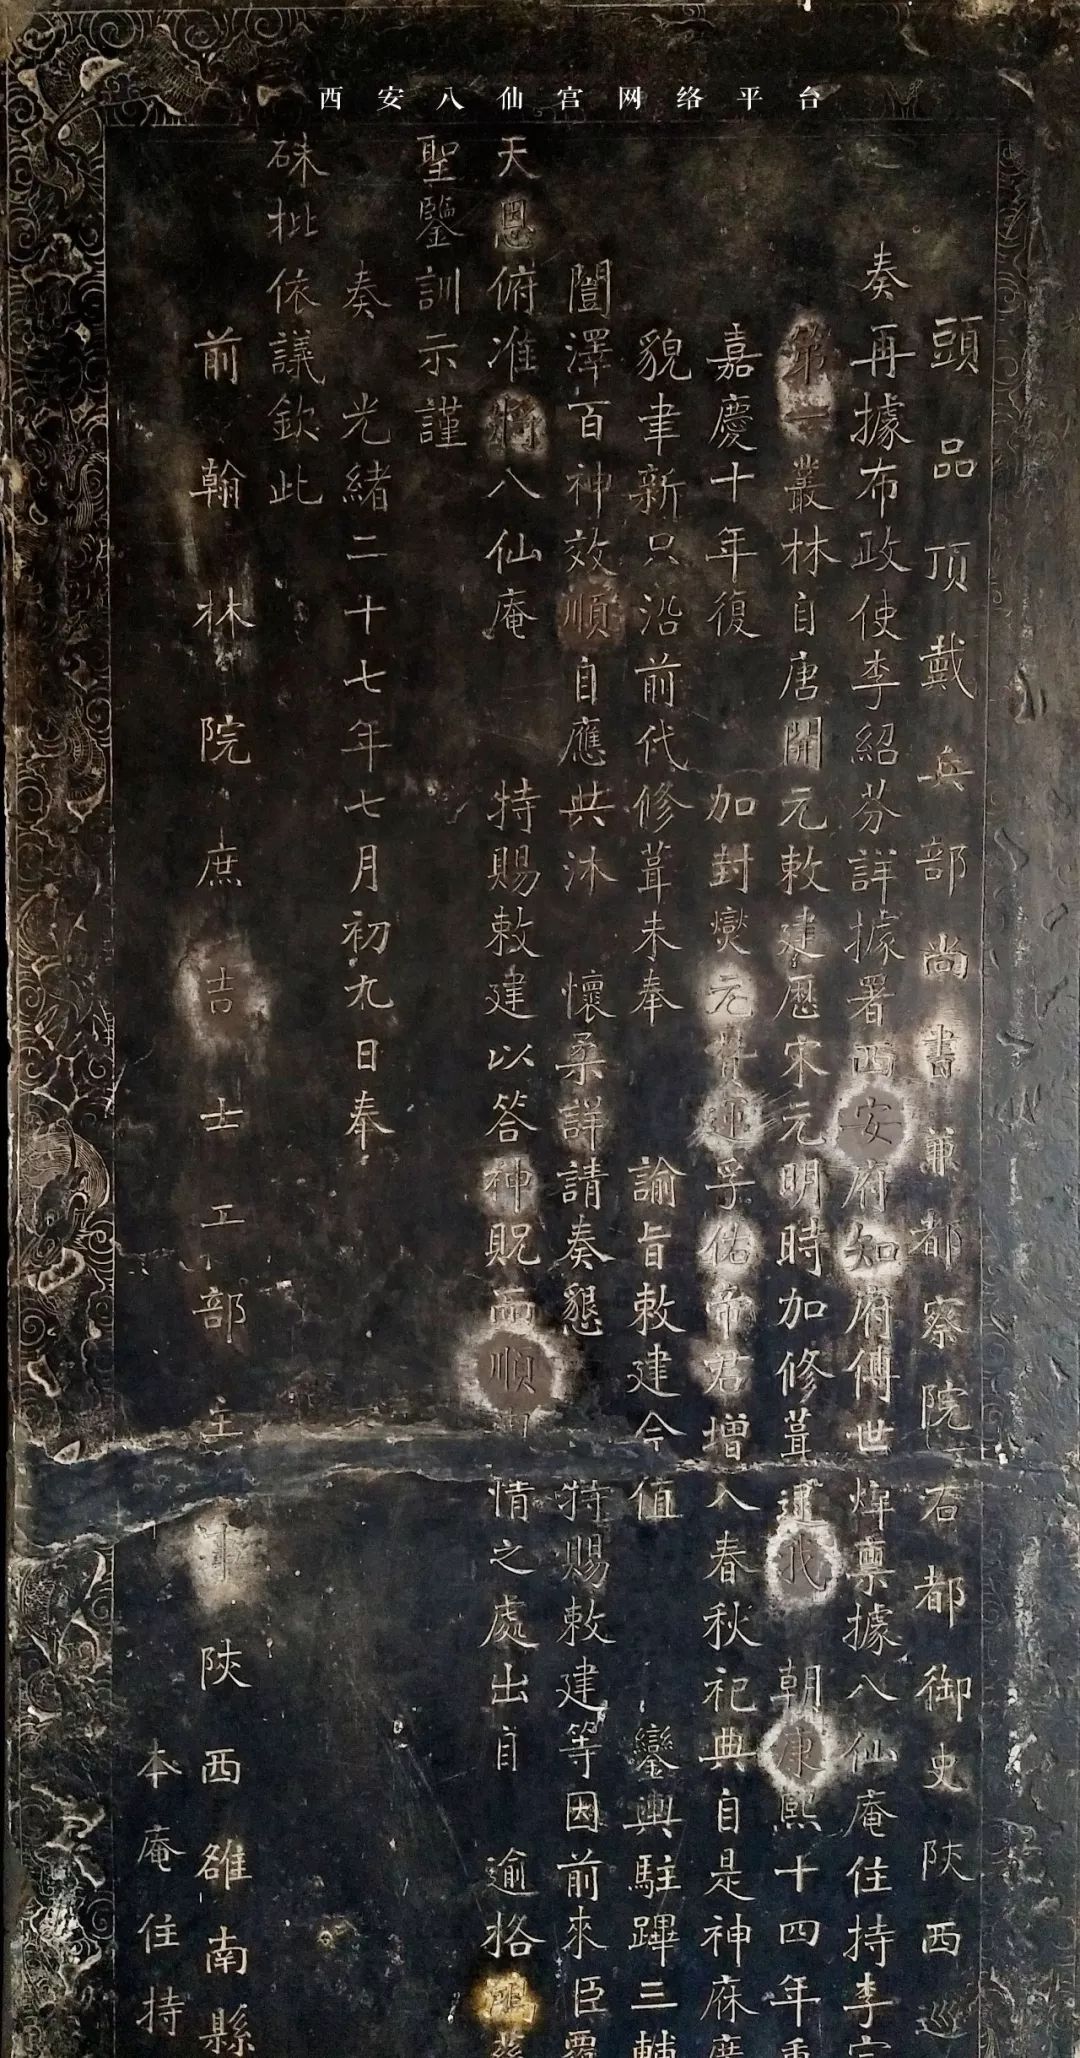 西安八仙宫网络平台
頭品頂戴兵部尚書兼都察院右都御史陝西巡
奏再據布政使李紹芬詳據署西安府知府傅世煒稟據八仙庵住持李宗
第一叢林自唐開元敕建歷宋元明時加修葺逮我朝康熙十四年重
嘉慶十年復加封燮元贊運孚佑帝君增入春秋祀典自是神庥
貌聿新只沿前代修葺未奉諭旨敕建今值鑾輿駐蹕三輔
闓澤百神效順自應共沐懷柔詳請奏懇特賜敕建等因前來臣覆
天恩俯准將八仙庵特賜敕建以答神貺而順情之處出自逾格鴻慈
聖鑒訓示謹
奏光緒二十七年七月初九日奉
硃批依議欽此
前翰林院庶吉士工部主事陝西雒南縣
本庵住持